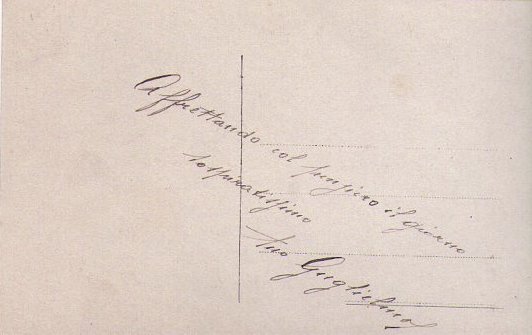 Affrettando col pensiero il giorno
sospiratissimo
tuo Guglielmo